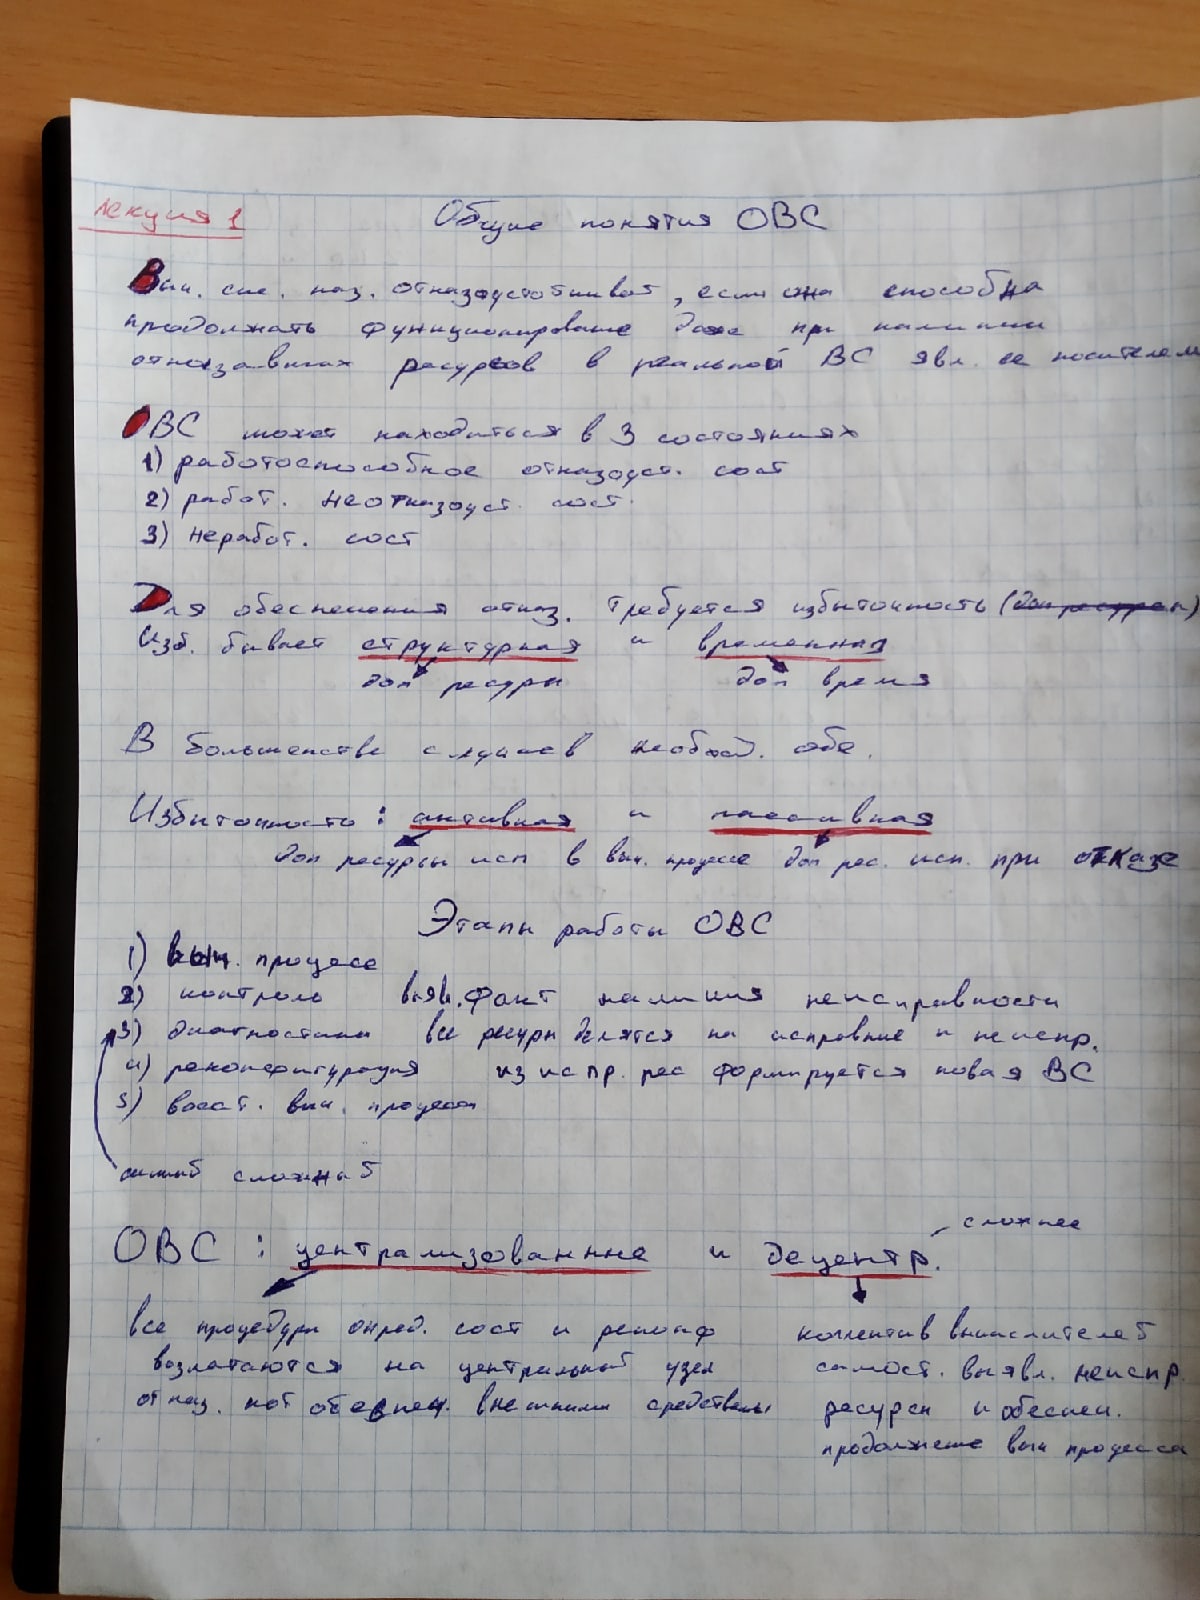 Лекция 1
Общие понятия ОВС
Выч. сис. наз. отказоустойчивой, если она способна
продолжать функционирование даже при наличии
отказавших ресурсов в реальной ВС явл. ее носителем
ОВС может находиться в 3 состояниях
1) работоспособное отказоуст. сост
2) работ. неотказоуст. сост.
3) неработ. сост
Для обеспечения отказ. требуется избыточность (доп ресурсы)
Изб. бывает структурная и временная
доп ресурсы доп время
В большенстве случаев необход. обе.
Избыточность: активная и пассивная
доп ресурсы исп в выч. процессе доп рес. исп. при отказе
Этапы работы ОВС
1) выч. процесс
2) контроль выяв. факт наличия неисправности
3) диагностики все ресурсы делятся на исправные и неиспр.
4) реконфигурация из испр. рес формируется новая ВС
5) восст. выч. процесса
самый сложный
сложнее
ОВС: централизованные и децентр.
все процедуры опред. сост и реконф
возлагаются на центральный узел
отказ. кот обеспеч. внешними средствами
коллектив вычислителей
самост. выявл. неиспр.
ресурсы и обеспеч.
продолжение выч процесса